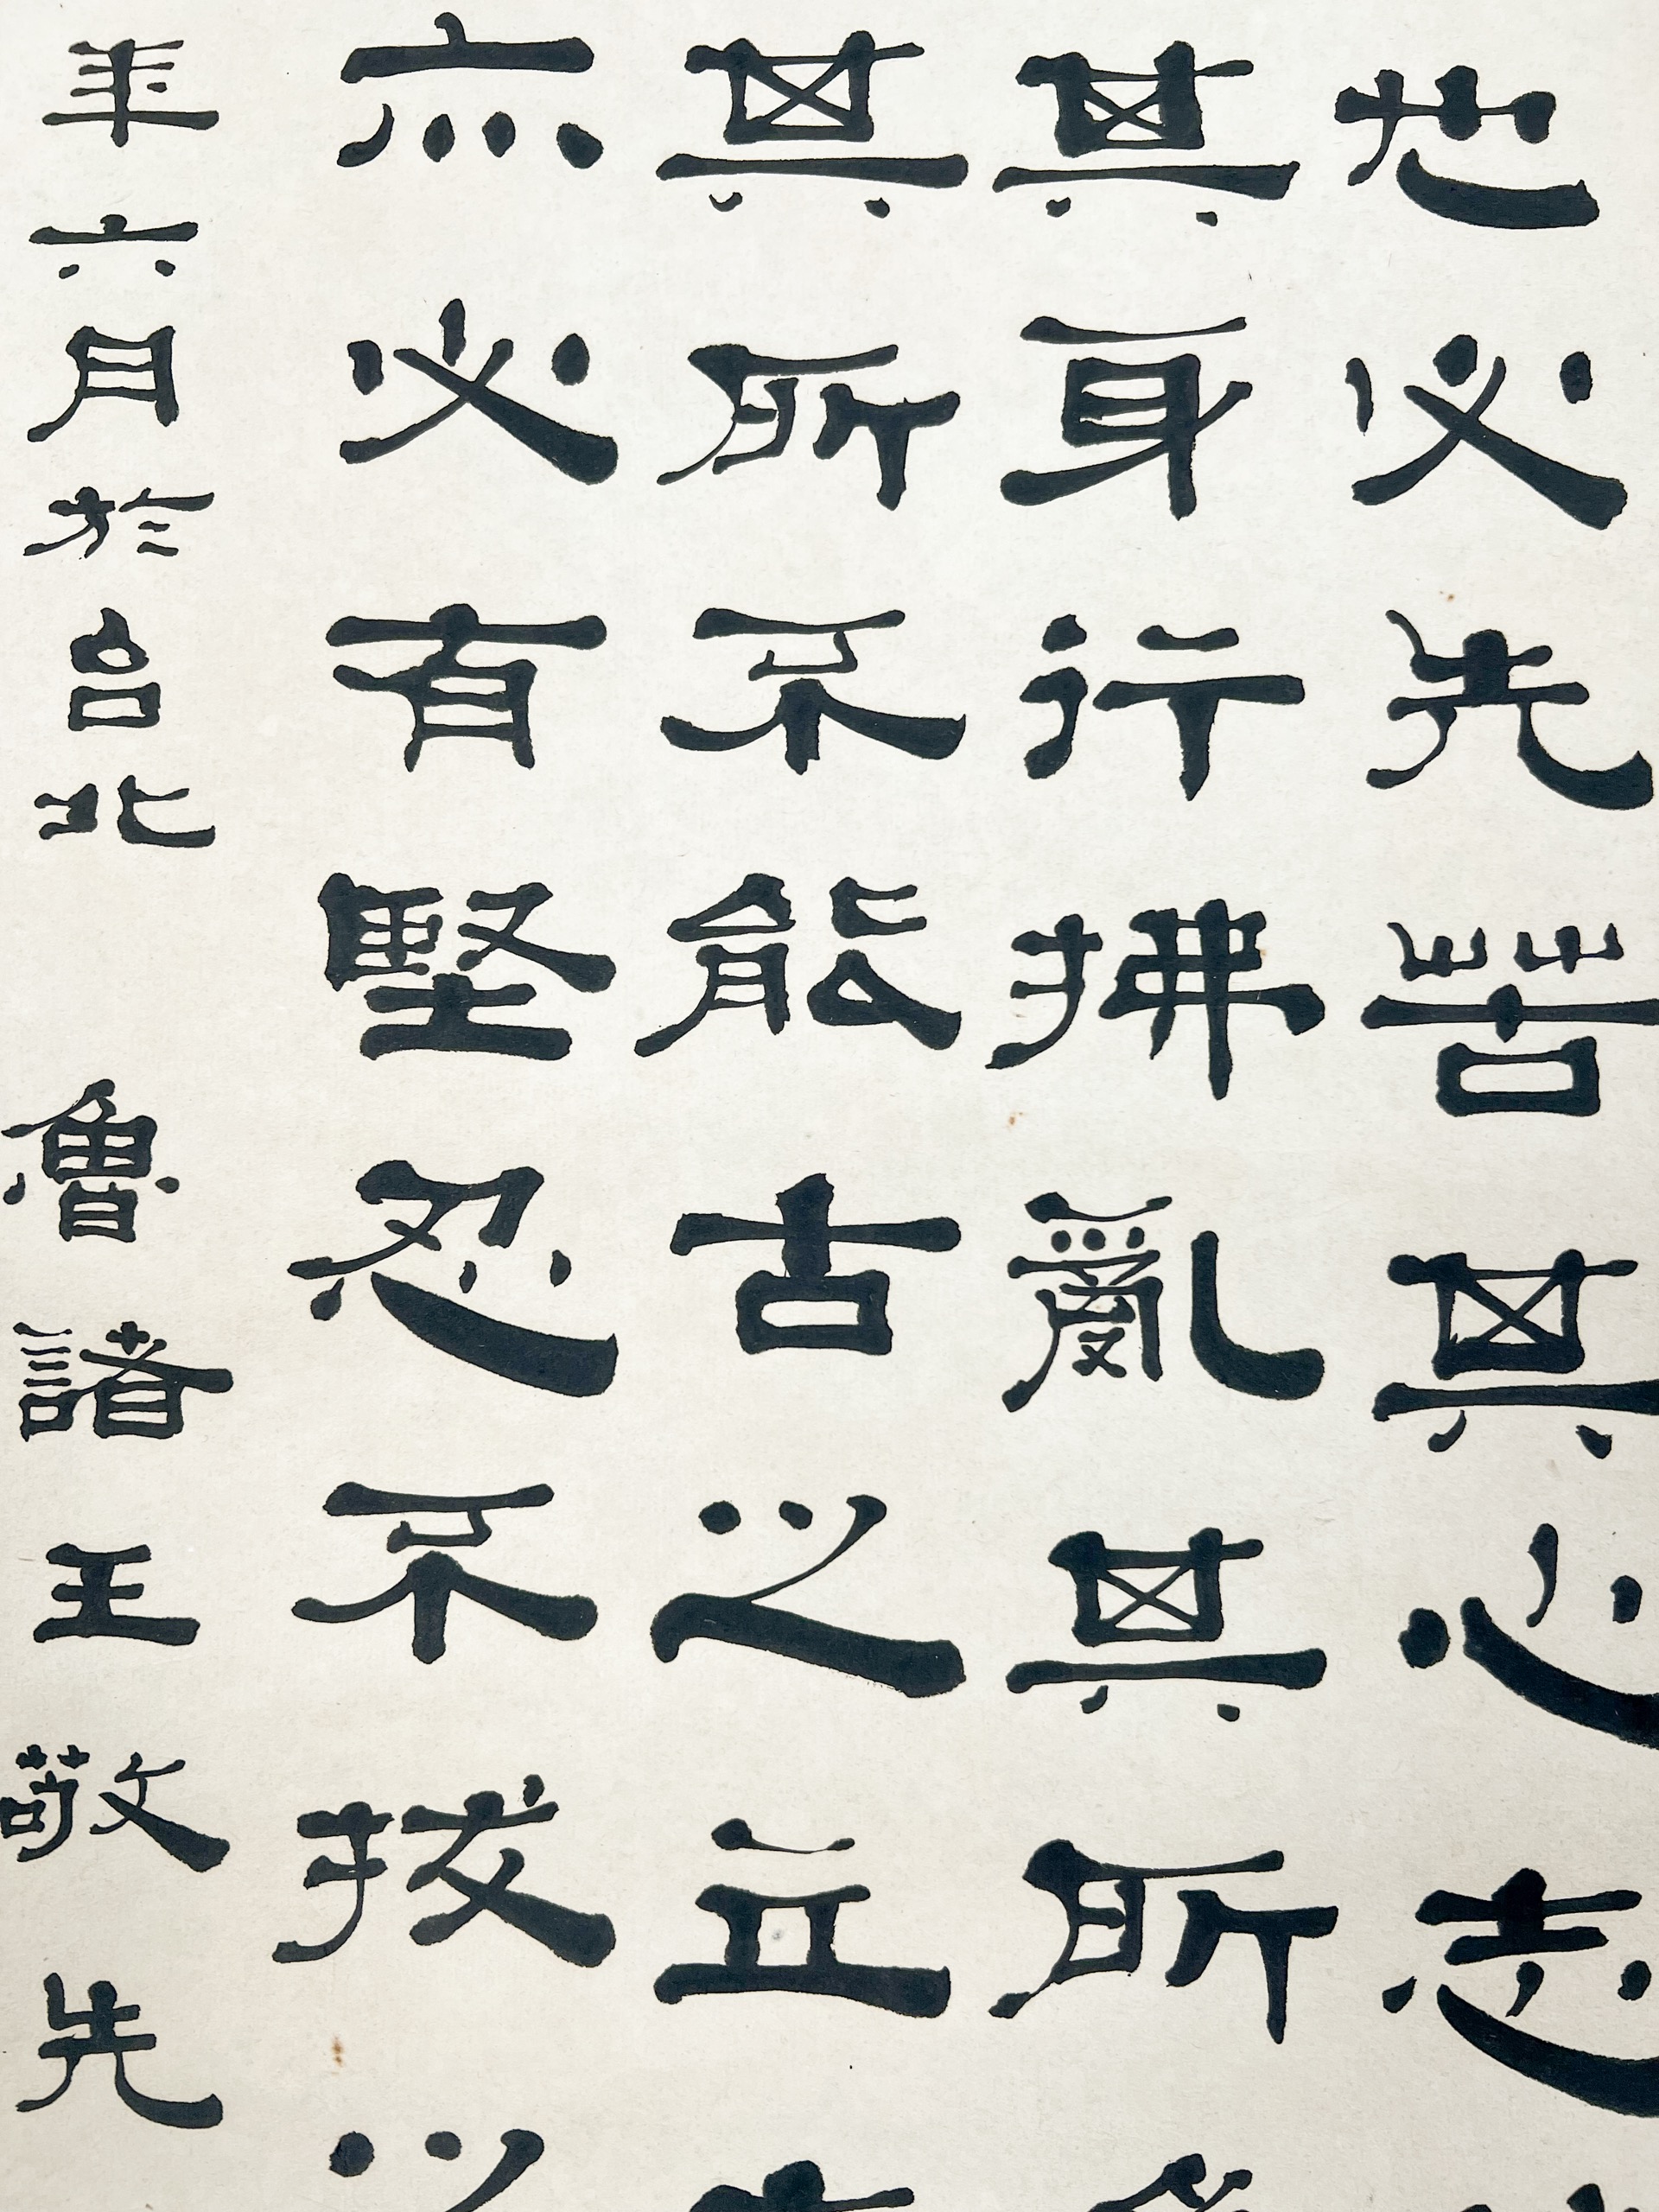 也必先苦其心志
其身行拂亂其所
其所不能古之立
亦必有堅忍不拔之
年六月於台北 魯諸王敬先